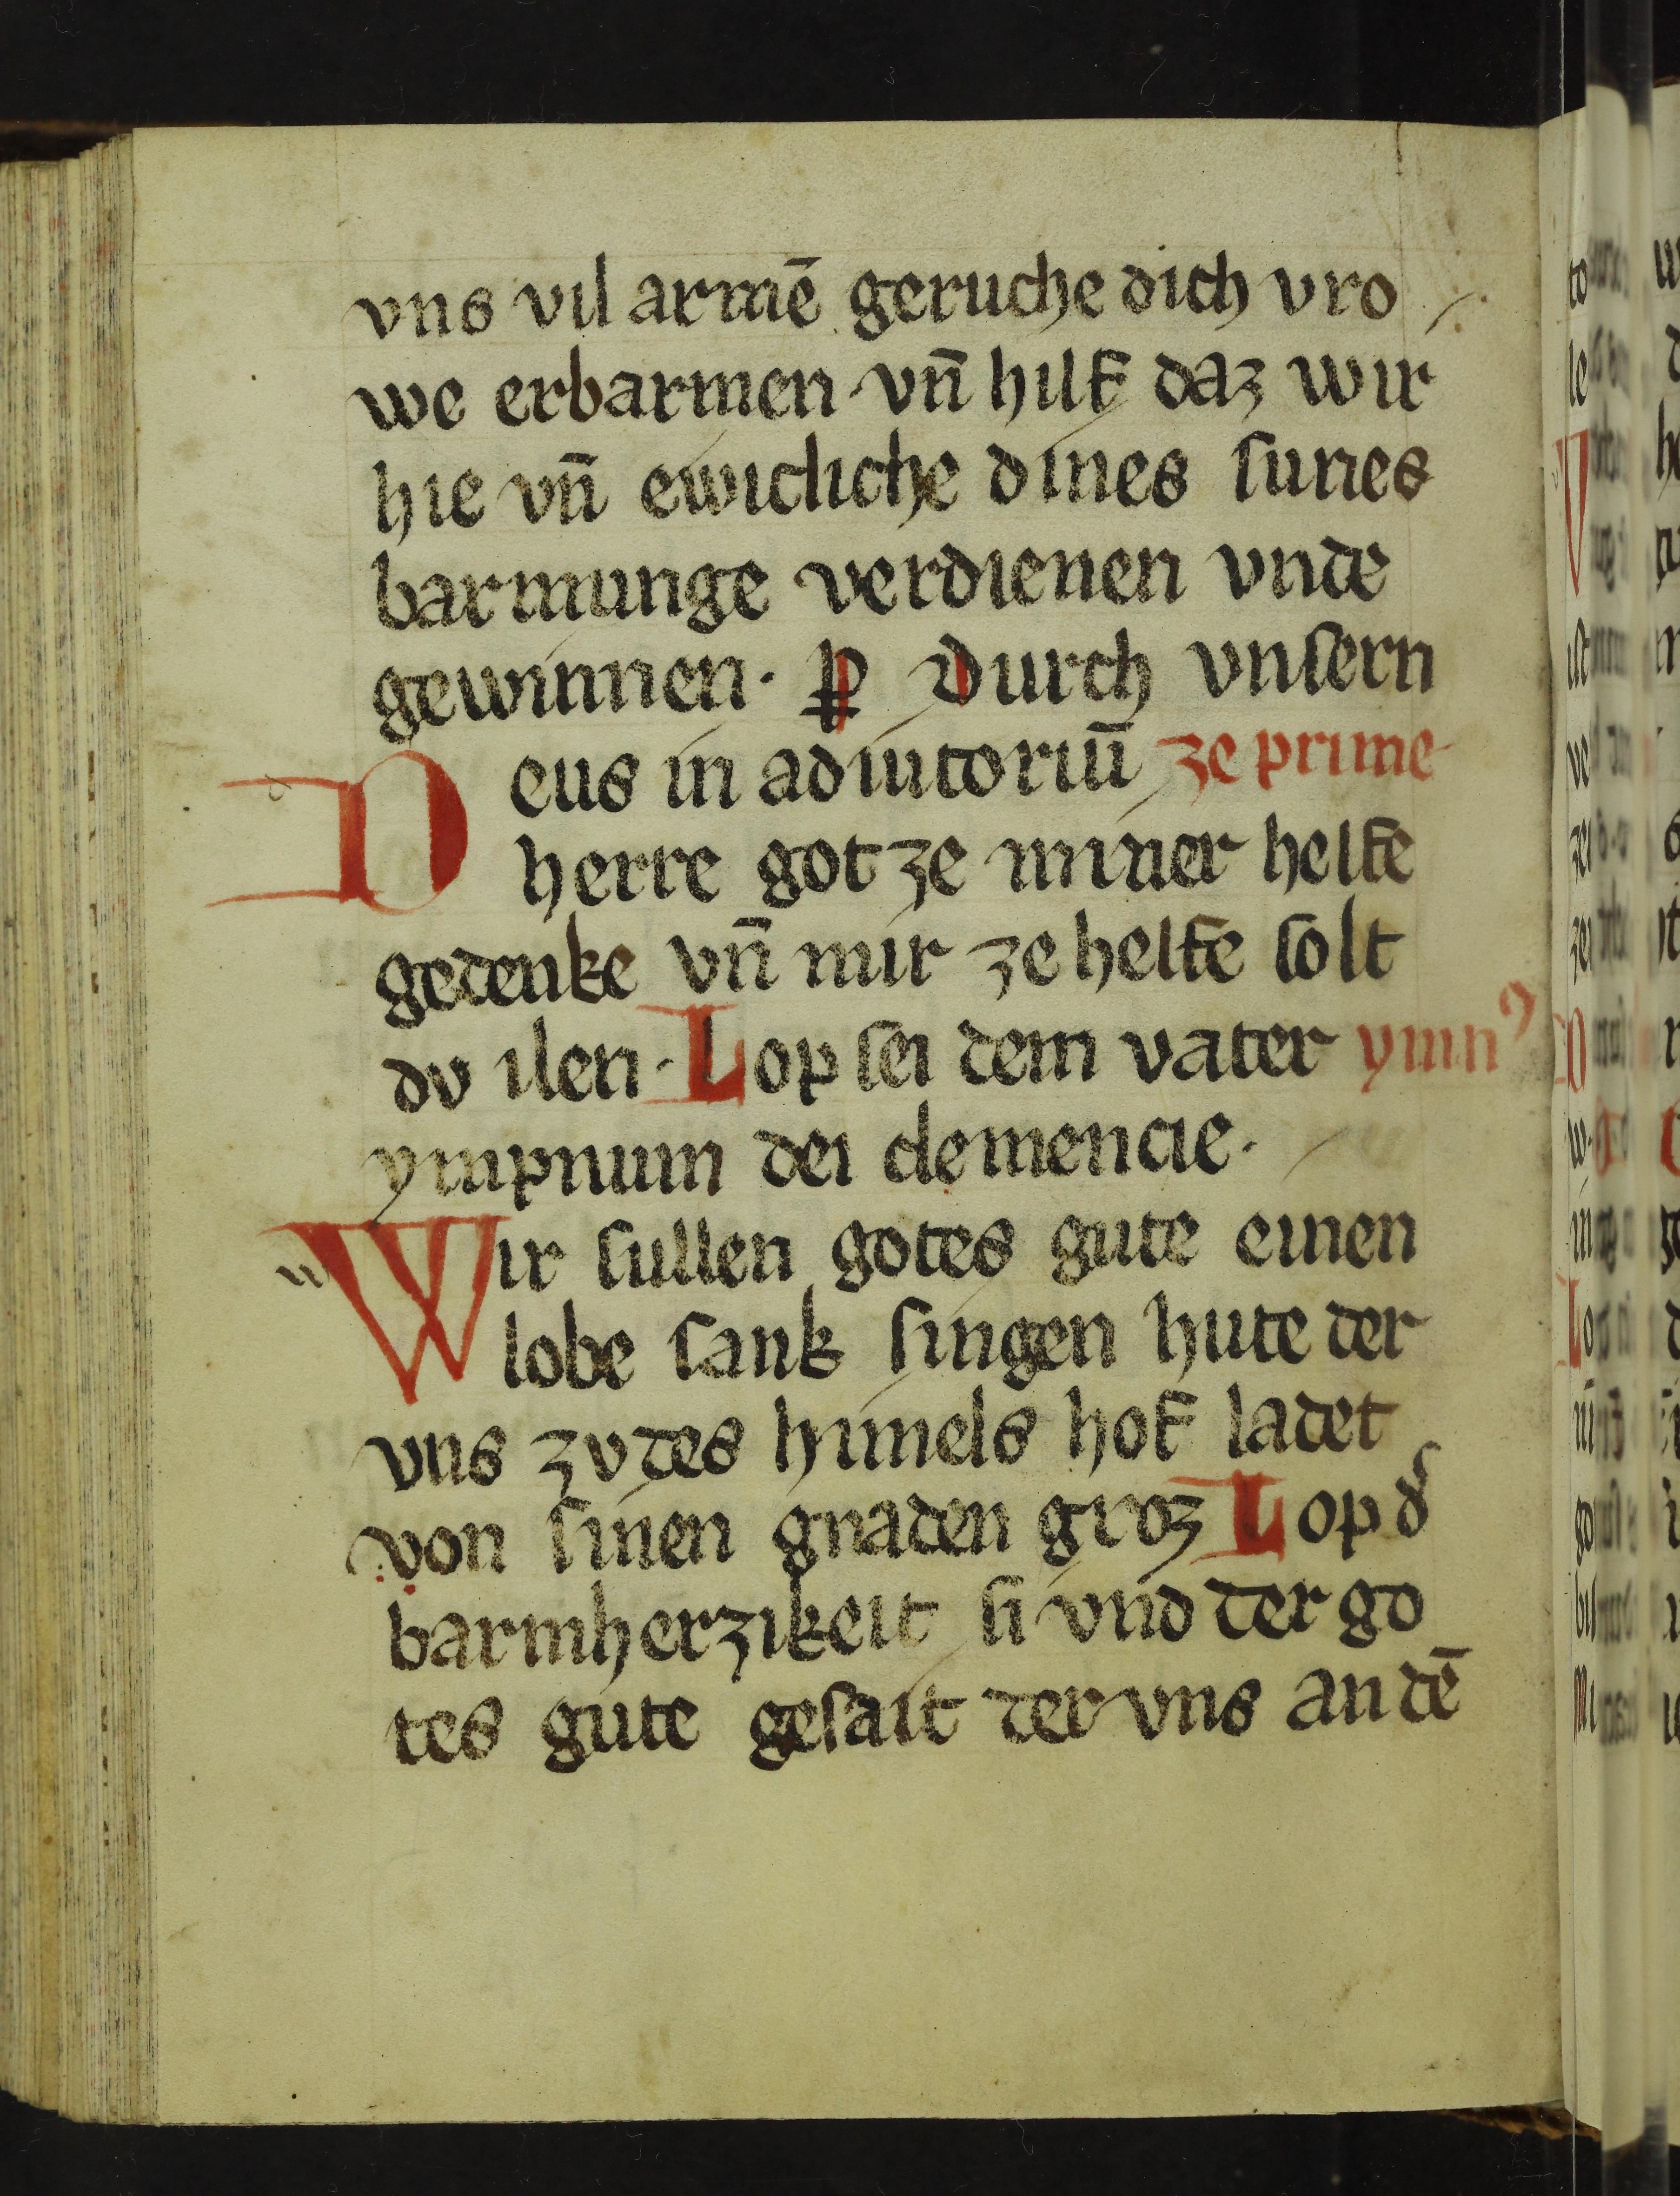 vns vil armē geruche dich vro
we erbarmen vn̄ hilf daz wir
hie vn̄ ewicliche dines sunes
barmunge verdienen vnde
gewinnen · ꝑ Durch vnsern
Deus in adiutoriū ze prime
herre got ze miner helfe
gedenke vn̄ mir ze helfe solt
dv ilen · Lop sei dem vater ymnꝰ
ympnum dei clemencie ·
Wir sullen gotes gute einen
lobe sank singen hute der
vns zv des himels hof ladet
von sinen gnaden groz Lop d'
barmherzikeit si vnd der go
tes gute gesait der vns an dē